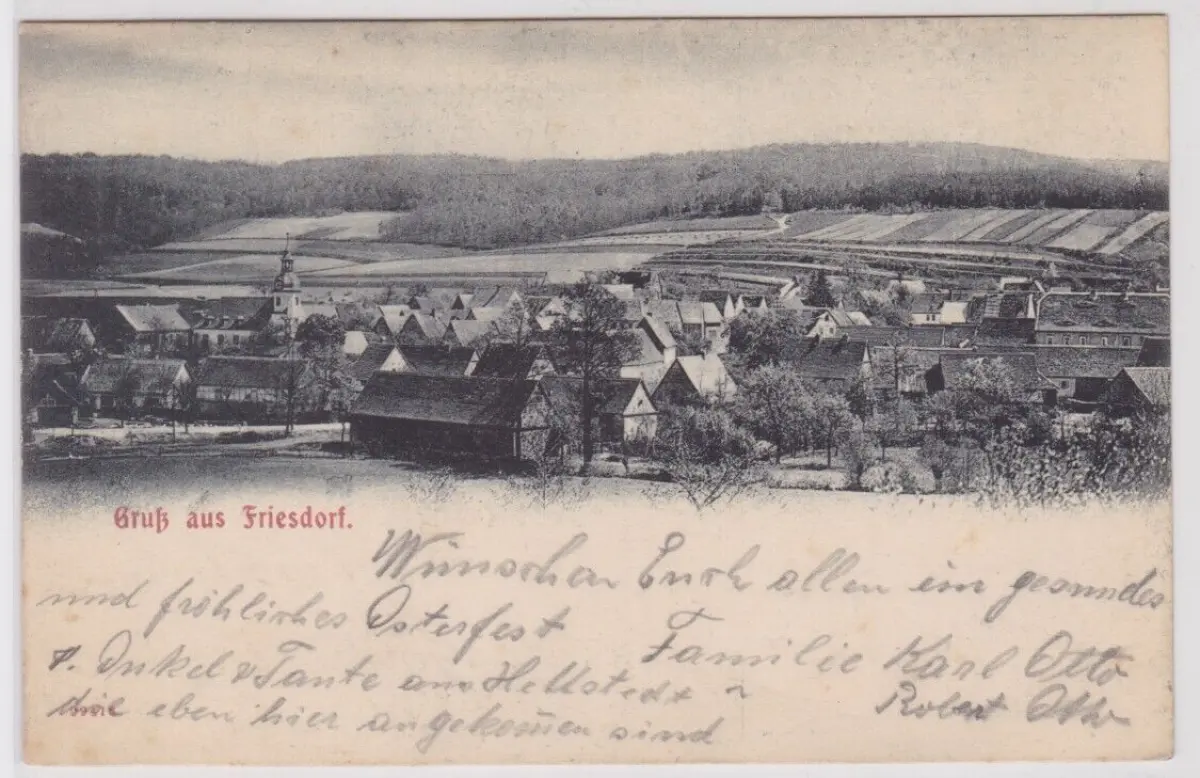 Gruß aus Friesdorf.
Wünschen Euch allen ein gesundes
und fröhliches Osterfest
Familie Karl Otto
Robert Otto
v. Onkel & Tante aus Hettstedt
die eben hier angekom̄en sind